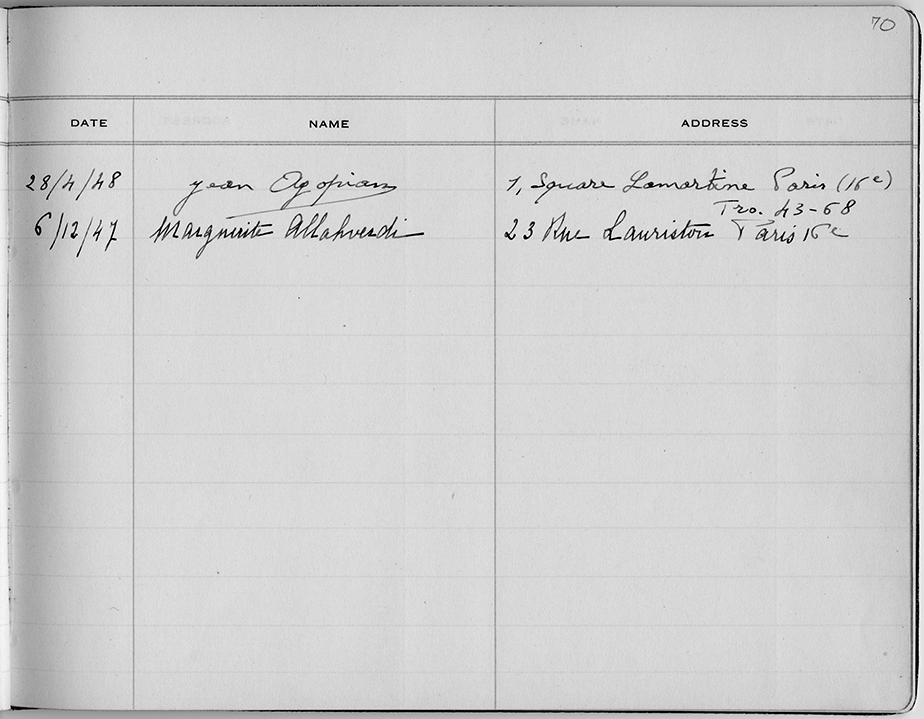 70
DATE NAME ADDRESS
28/4/48 Jean Agopian 1, Square Lamartine Paris (16e)
Tro. 43-68
6/12/47 Marguerite Allahverdi 23 Rue Lauriston Paris 16e